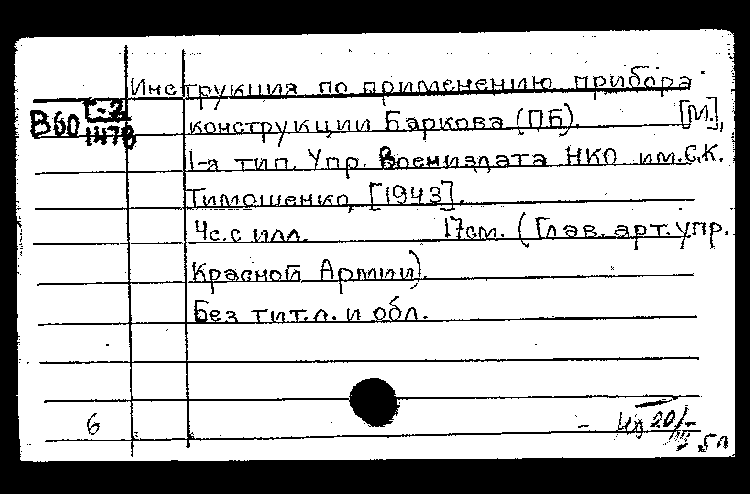 Инструкция по применению прибора
В60 Г-2
1478
конструкции Баркова (ПБ). [М.],
1-я тип. Упр. Воениздата НКО им. С.К.
Тимошенко, [1943].
4с. с илл. 17см. (Глав. арт. упр.
Красной Армии).
Без тит. л. и обл.
6